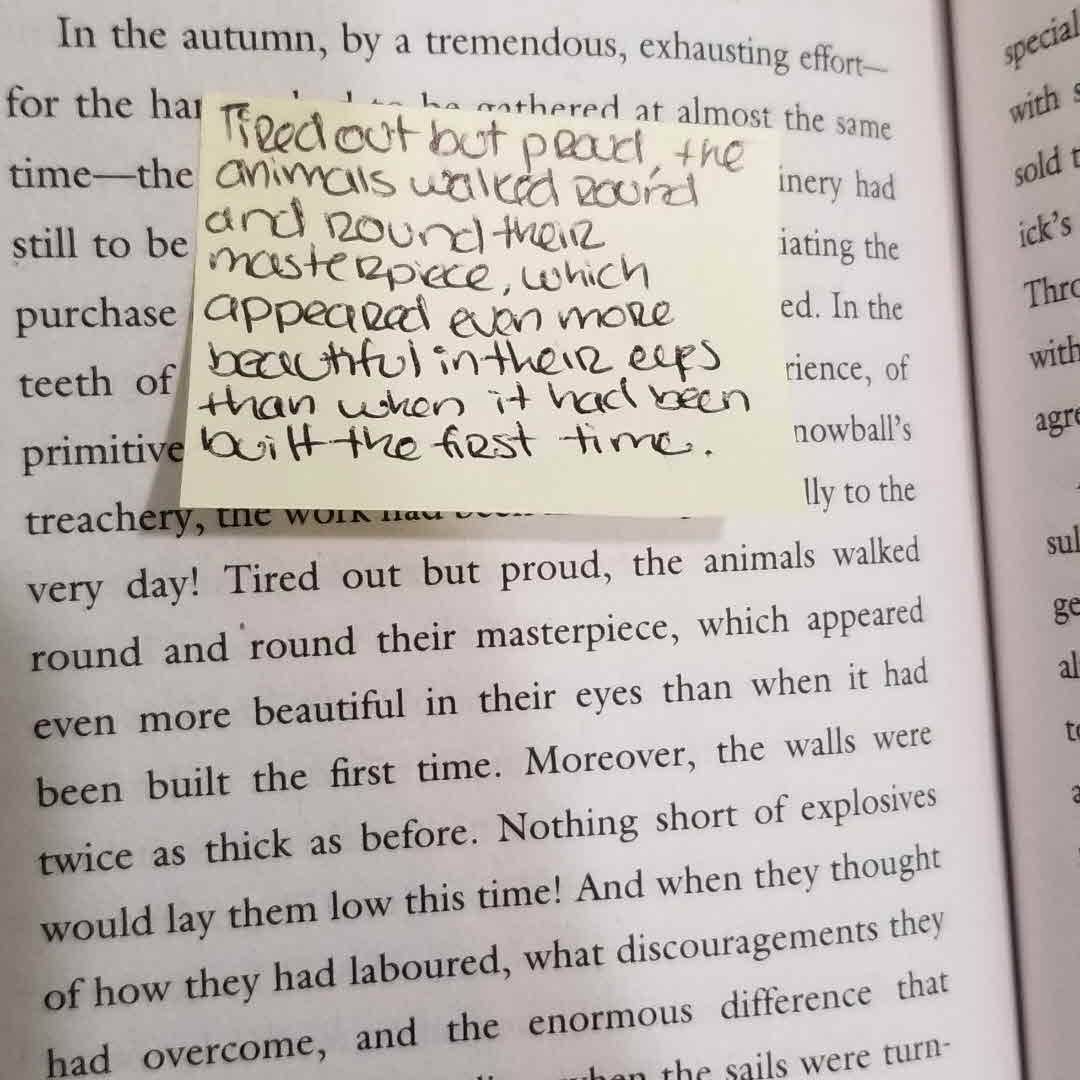 In the autumn, by a tremendous, exhausting effort—
for the gathered at almost the same
time—the inery had
still to be iating the
purchase ed. In the
teeth of rience, of
primitive nowball's
treachery, the work had lly to the
Tired out but proud, the
animals walked round
and round their
masterpiece, which
appeared even more
beautiful in their eyes
than when it had been
built the first time.
very day! Tired out but proud, the animals walked
round and 'round their masterpiece, which appeared
even more beautiful in their eyes than when it had
been built the first time. Moreover, the walls were
twice as thick as before. Nothing short of explosives
would lay them low this time! And when they thought
of how they had laboured, what discouragements they
had overcome, and the enormous difference that
when the sails were turn-
special
with
sold
ick's
Thro
with
agre
sul
ge
al